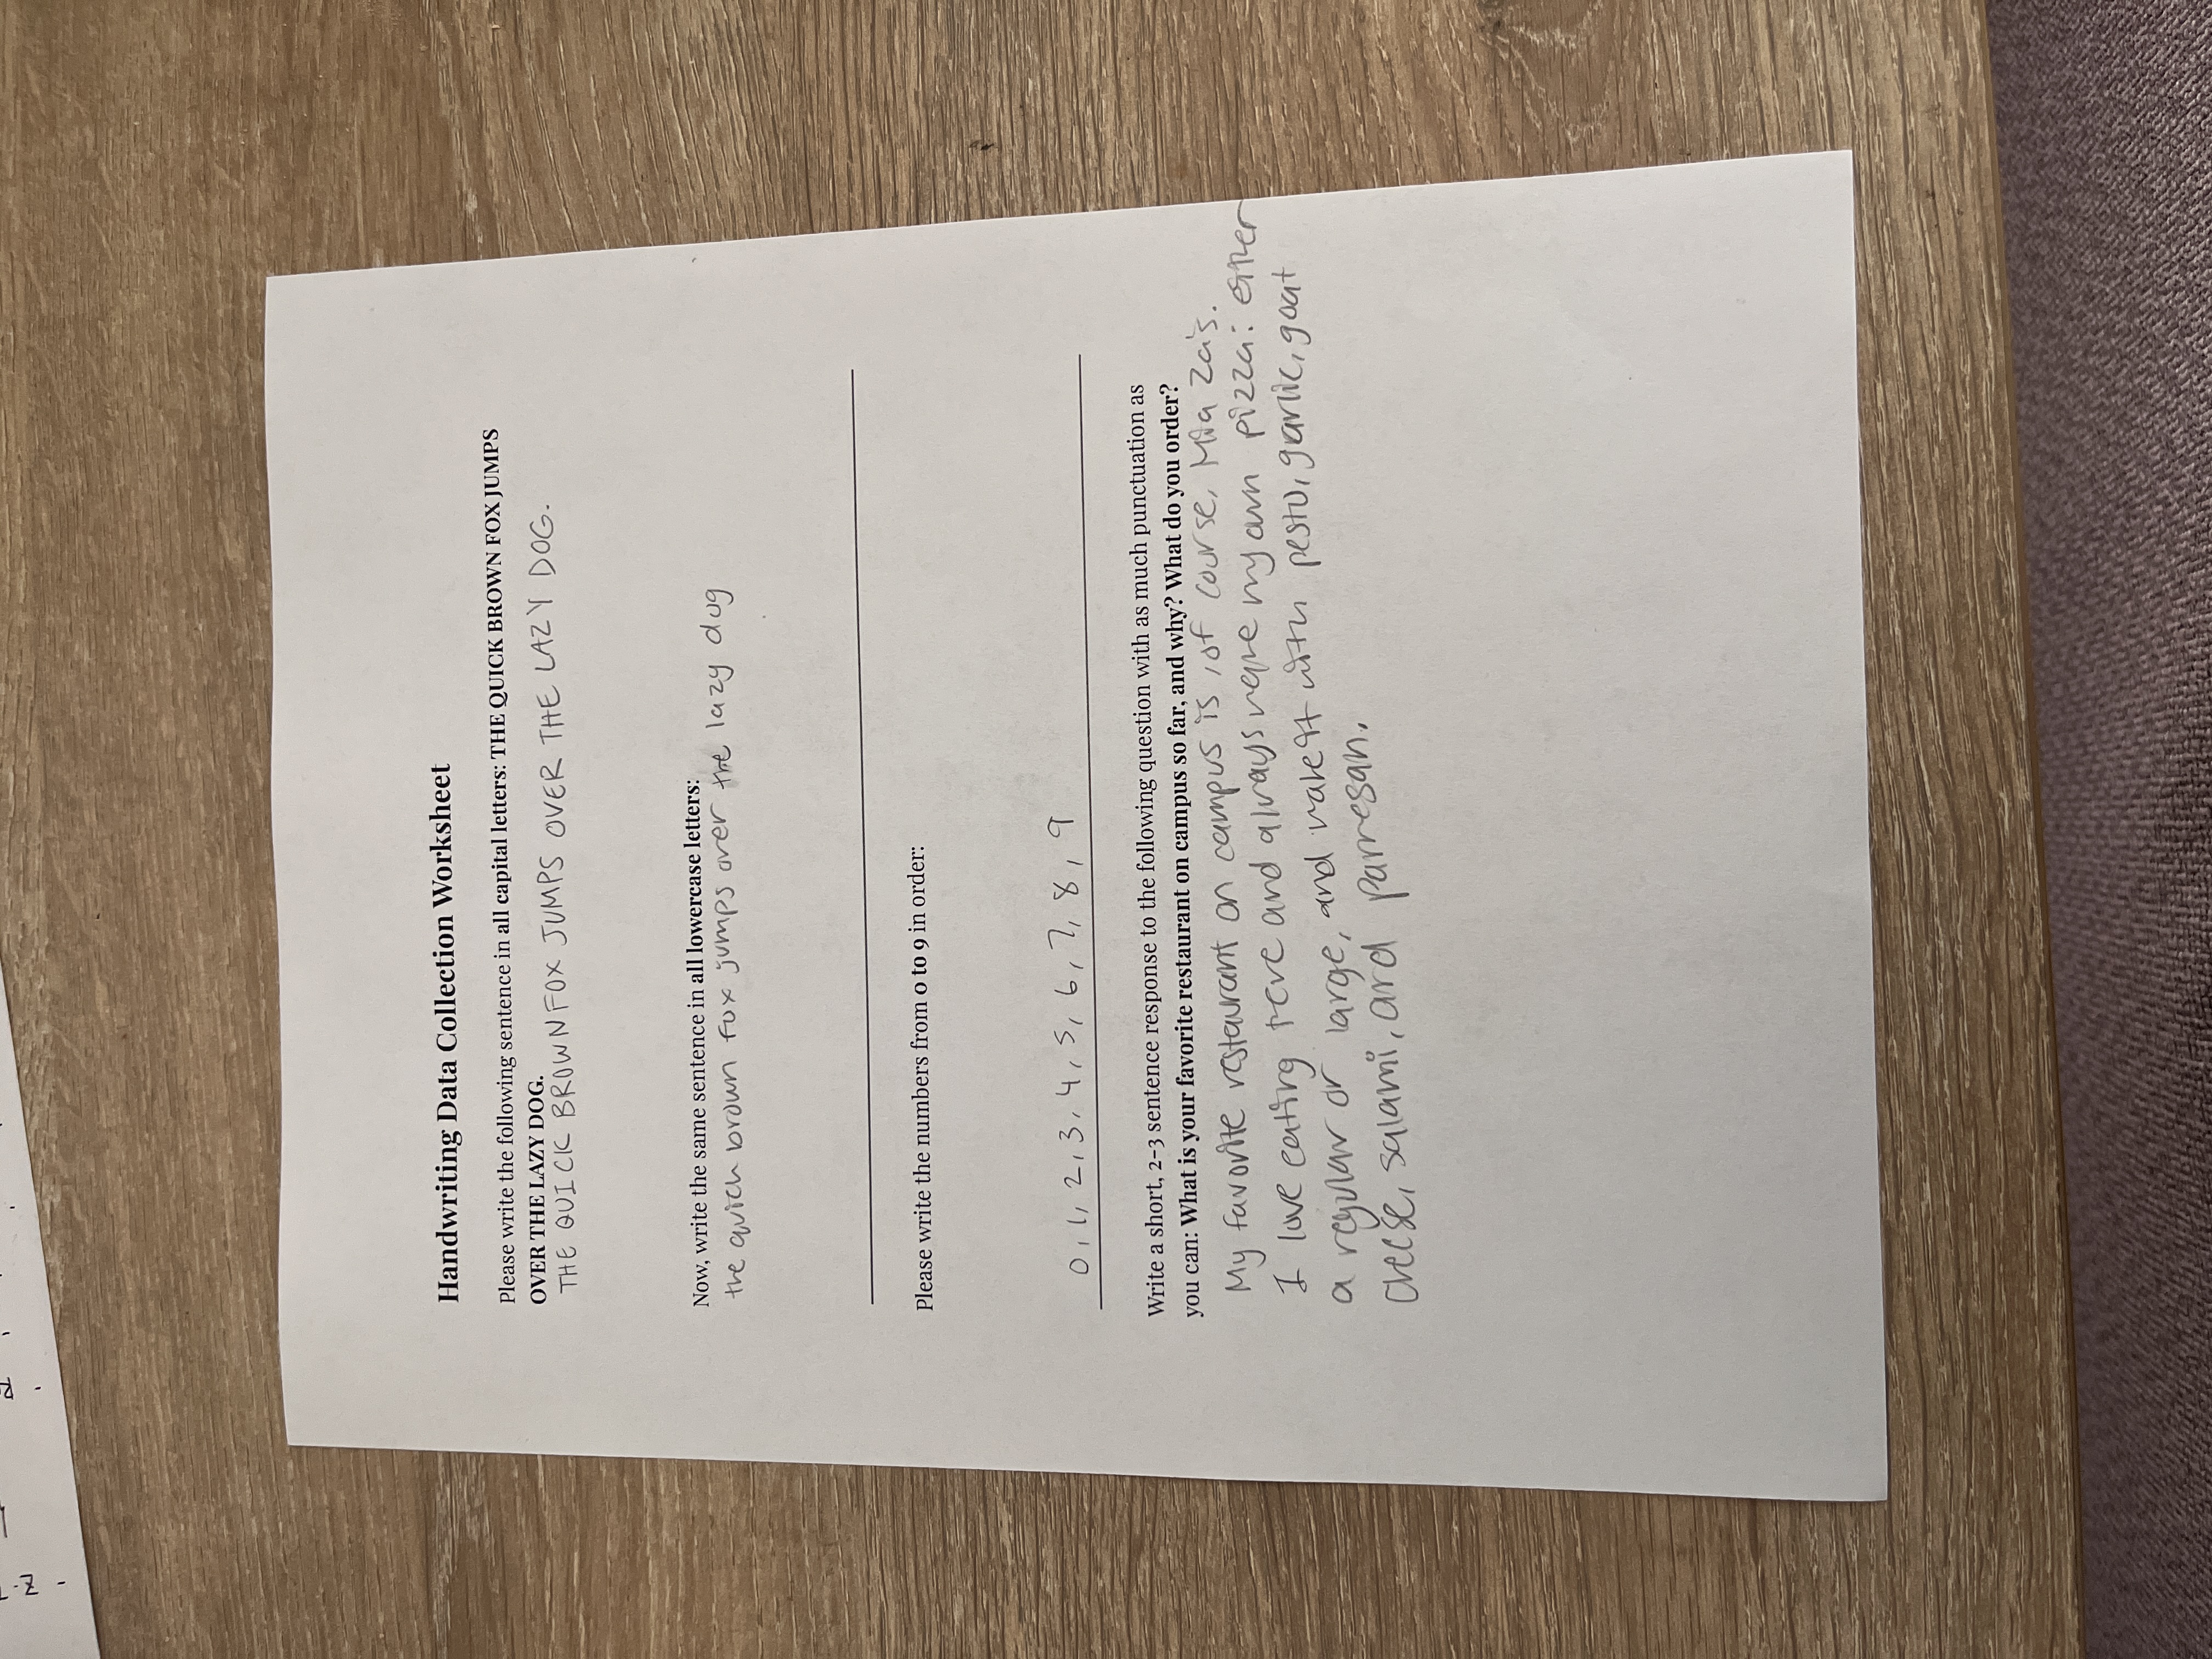 Handwriting Data Collection Worksheet
Please write the following sentence in all capital letters: THE QUICK BROWN FOX JUMPS
OVER THE LAZY DOG.
THE QUICK BROWN FOX JUMPS OVER THE LAZY DOG.
Now, write the same sentence in all lowercase letters:
the quick brown fox jumps over the lazy dog
Please write the numbers from 0 to 9 in order:
0, 1, 2, 3, 4, 5, 6, 7, 8, 9
Write a short, 2-3 sentence response to the following question with as much punctuation as
you can: What is your favorite restaurant on campus so far, and why? What do you order?
My favorite restaurant on campus is, of course, Mia Za's.
I love eating there and always make my own pizza: either
a regular or large, and make it with pesto, garlic, goat
cheese, salami, and parmesan.